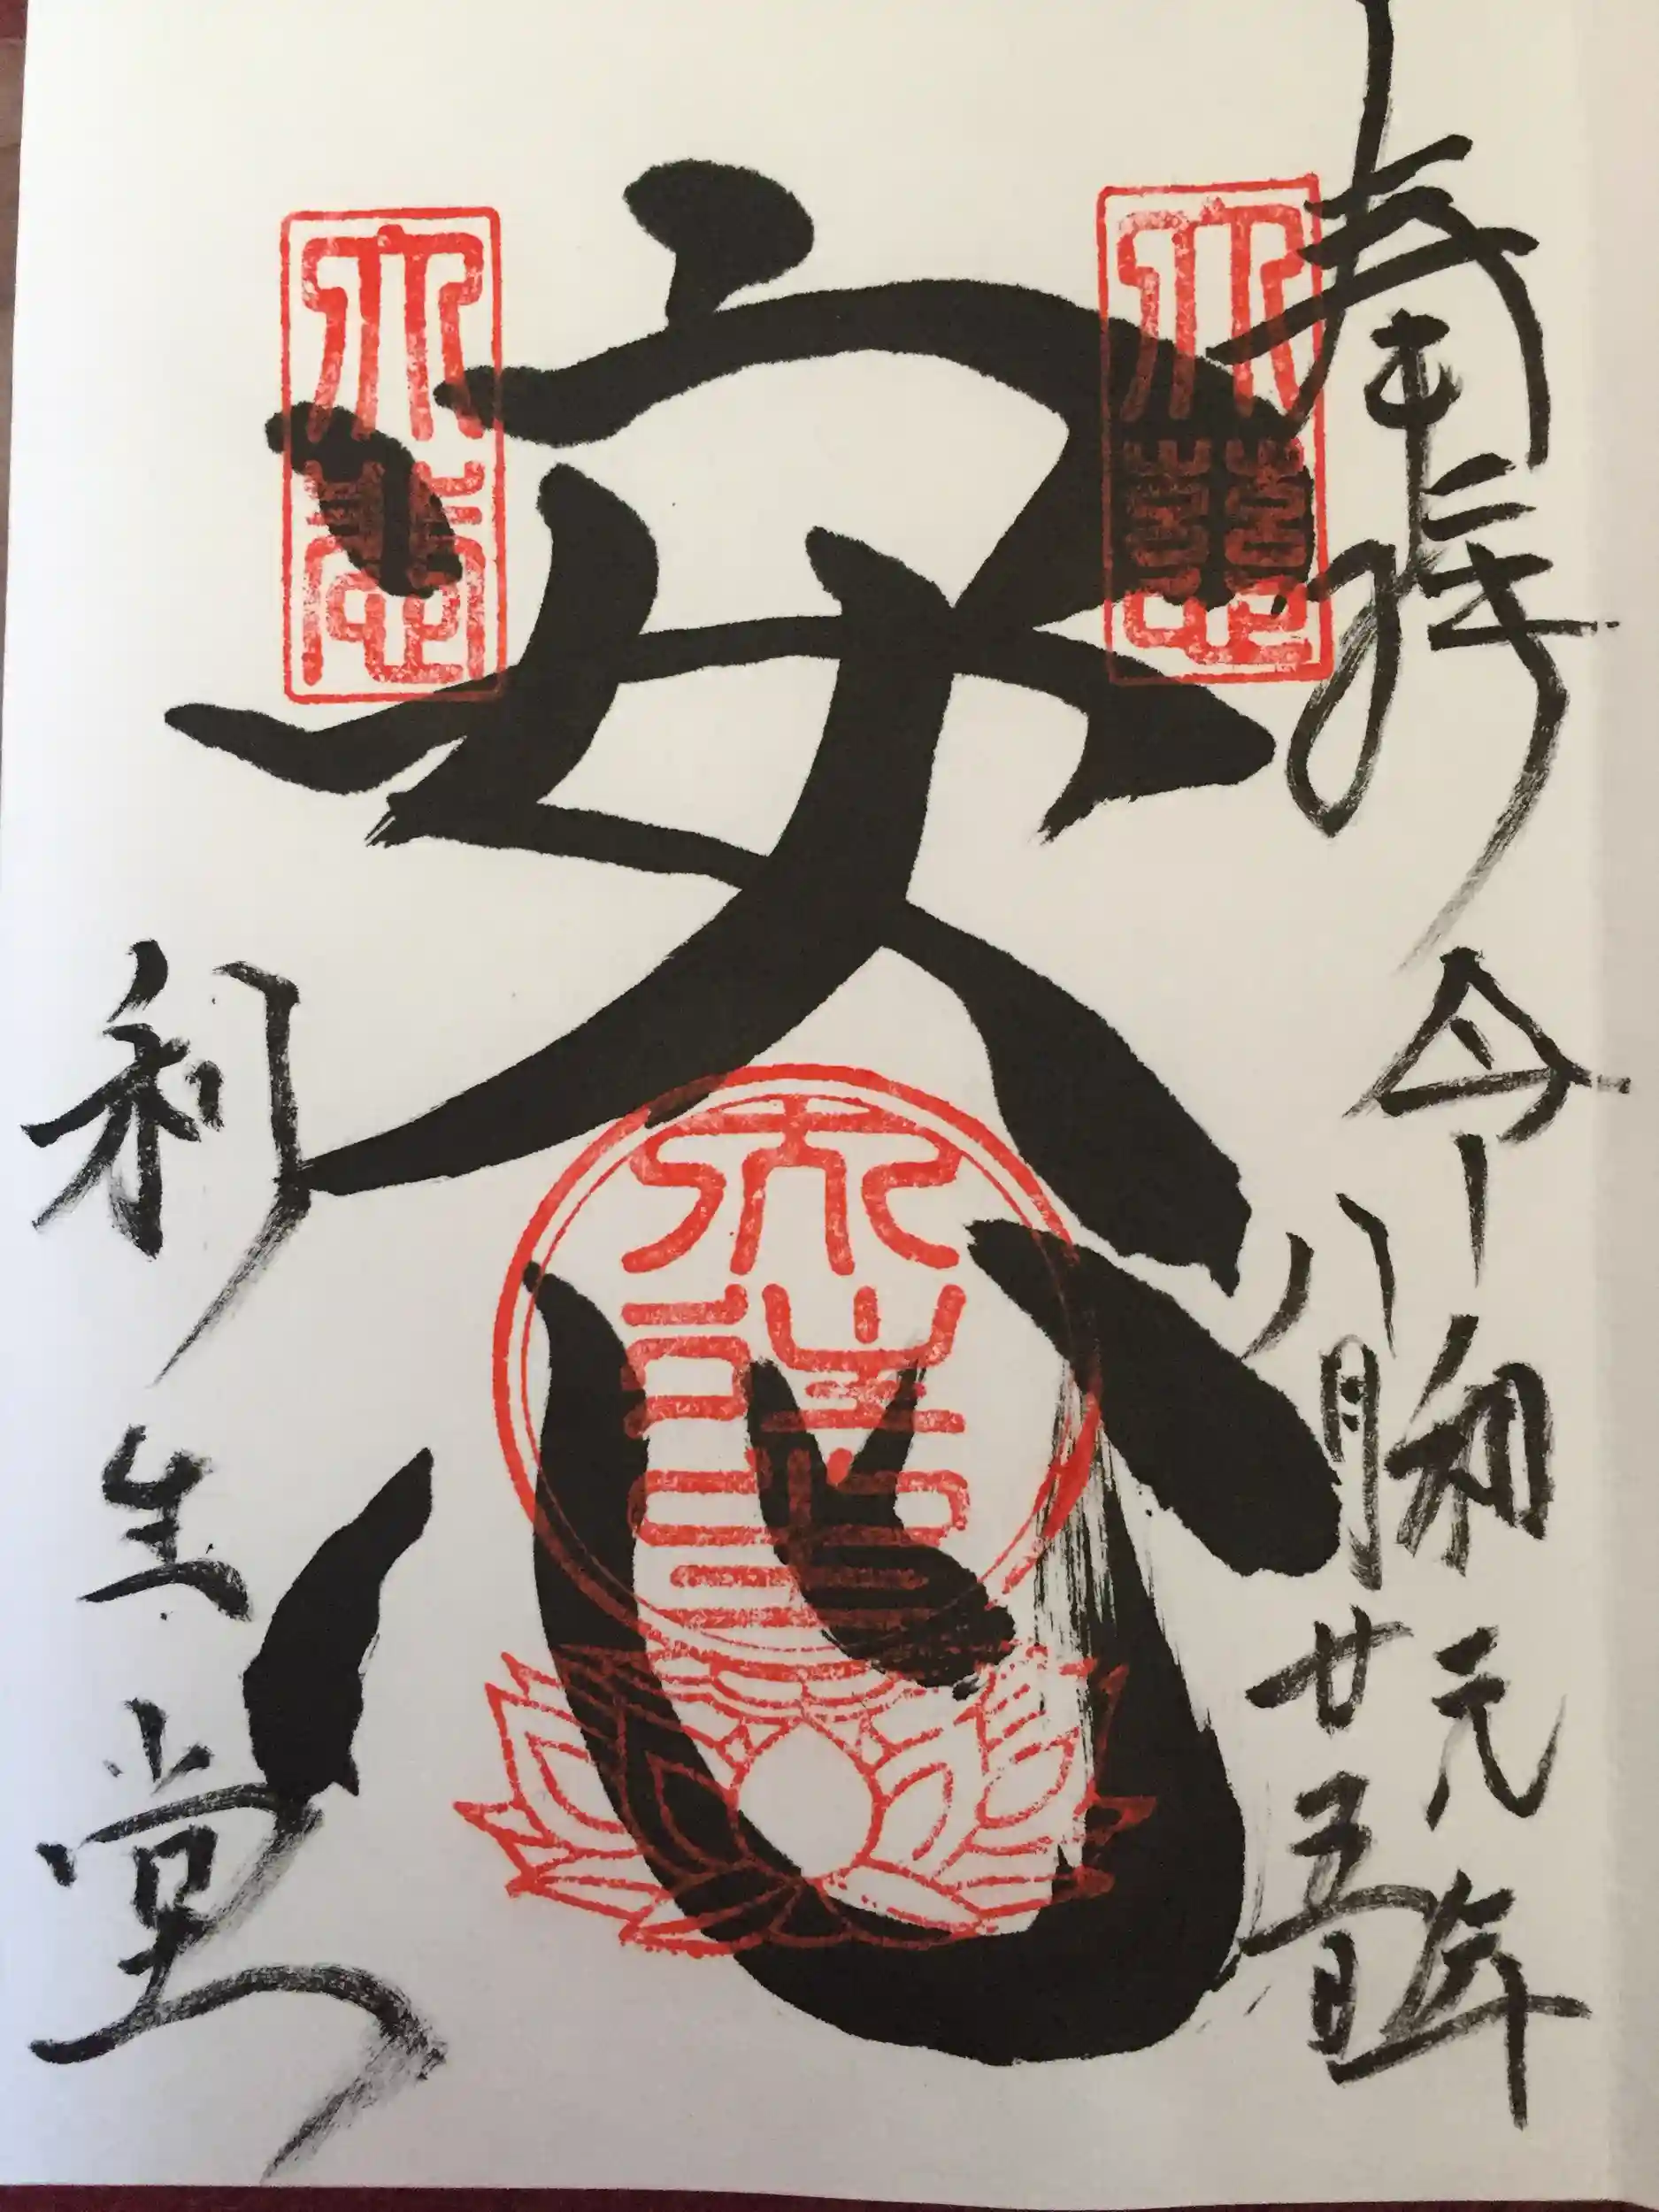 奉拝 令和元年
八月廿五日
安心
利生堂